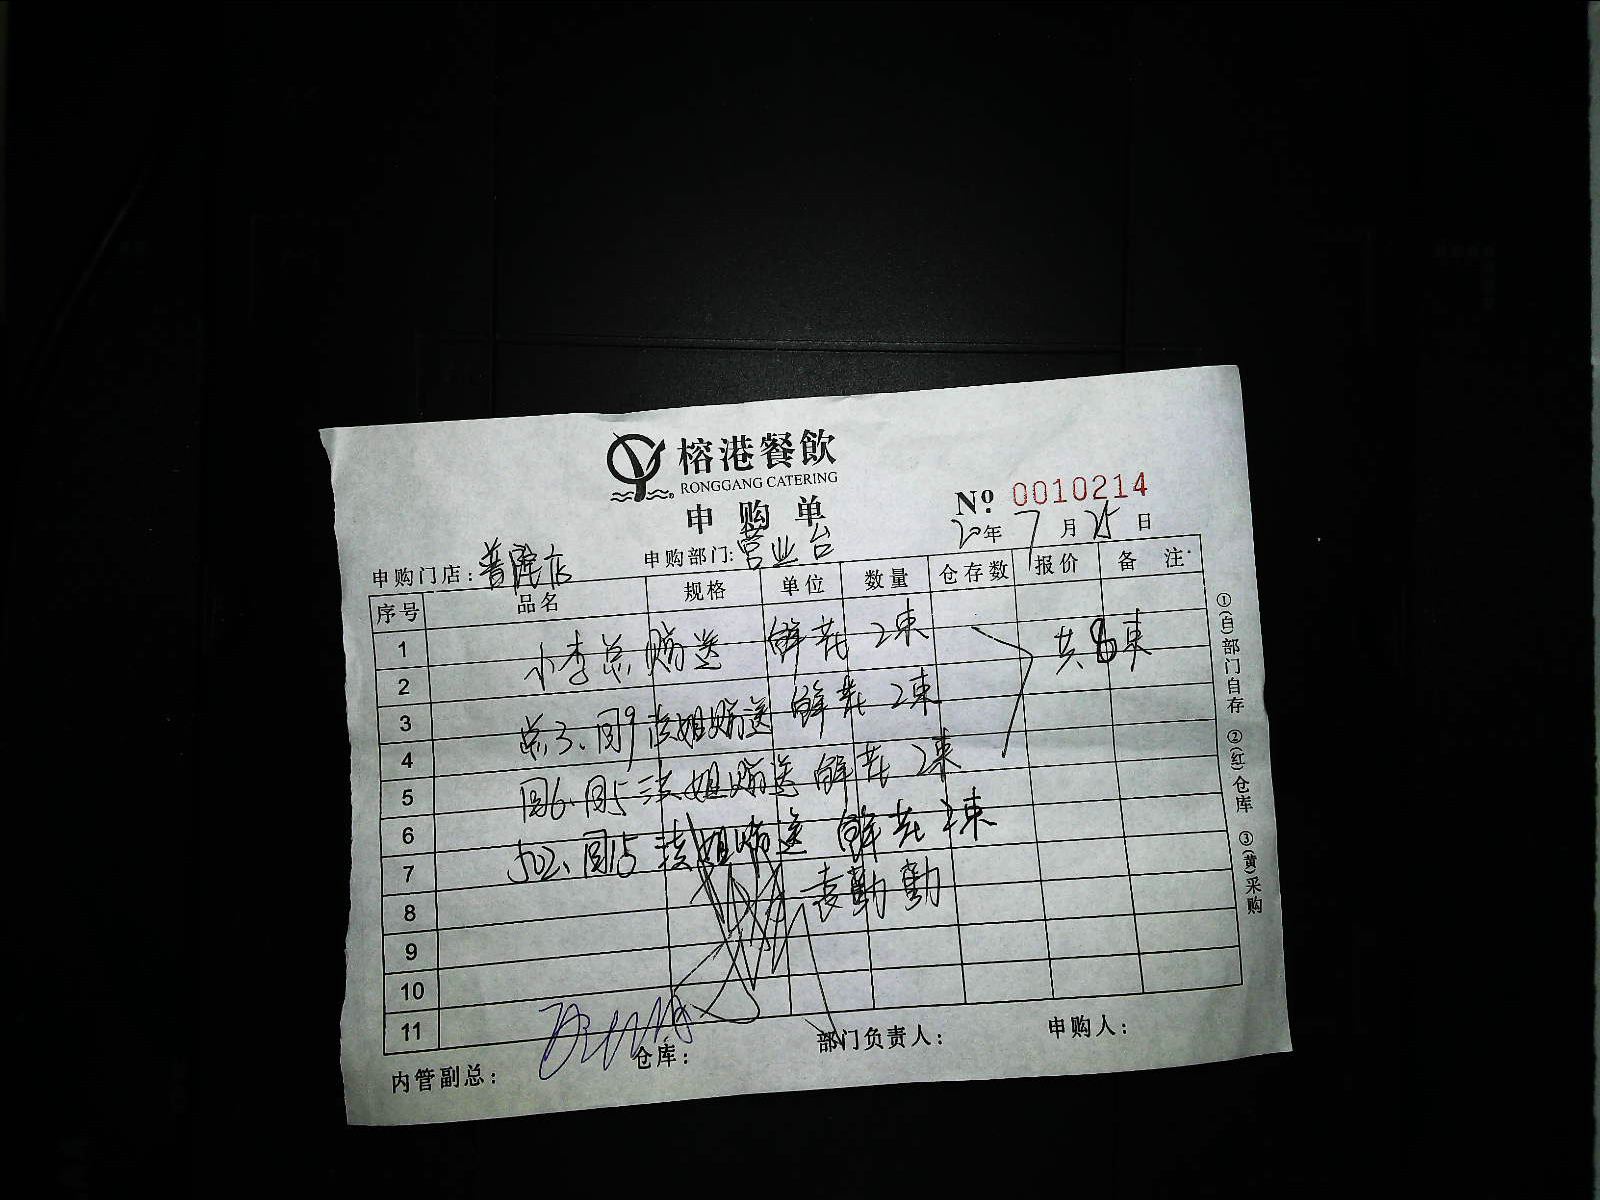 榕港餐飲
RONGGANG CATERING
申购单
№ 0010214
20年7月25日
申购门店：普陀店 申购部门：营业台
序号 品名 规格 单位 数量 仓存数 报价 备注
1 小李总赠送 鲜花 2束 共8束
2
3 总3、同9 姐赠送 鲜花 2束
4
5 同6、同5 姐赠送 鲜花 2束
6
7 502、同15 姐赠送 鲜花 2束
8 袁勤勤
9
10
11
内管副总： 仓库： 部门负责人： 申购人：
①(白)部门自存 ②(红)仓库 ③(黄)采购